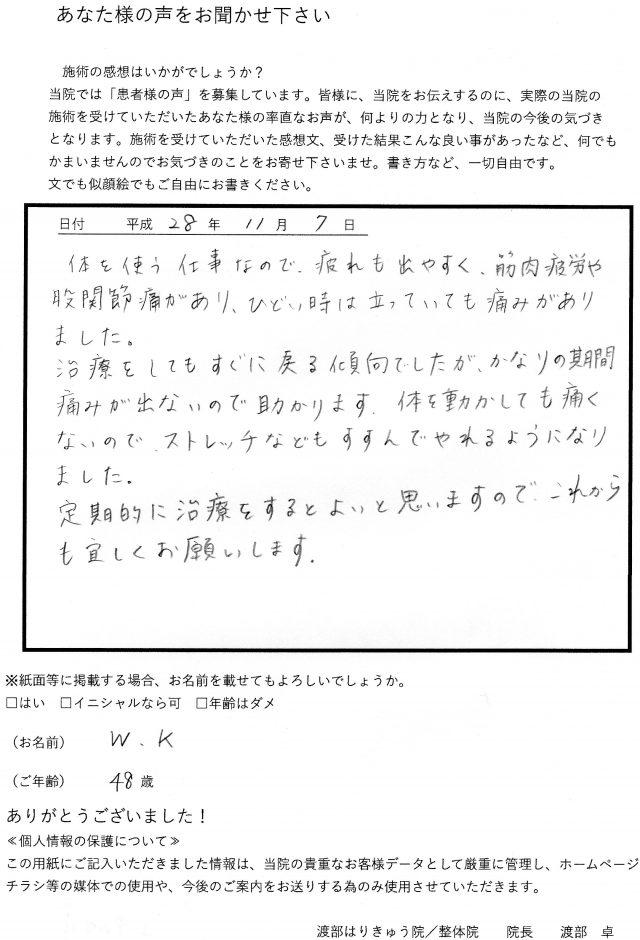 あなた様の声をお聞かせ下さい
施術の感想はいかがでしょうか？
当院では「患者様の声」を募集しています。皆様に、当院をお伝えするのに、実際の当院の
施術を受けていただいたあなた様の率直なお声が、何よりの力となり、当院の今後の気づき
となります。施術を受けていただいた感想文、受けた結果こんな良い事があったなど、何でも
かまいませんのでお気づきのことをお寄せ下さいませ。書き方など、一切自由です。
文でも似顔絵でもご自由にお書きください。
日付 平成 28 年 11 月 7 日
体を使う仕事なので、疲れも出やすく、筋肉疲労や
股関節痛があり、ひどい時は立っていても痛みがあり
ました。
治療をしてもすぐに戻る傾向でしたが、かなりの期間
痛みが出ないので助かります。体を動かしても痛く
ないので、ストレッチなどもすすんでやれるようになり
ました。
定期的に治療をするとよいと思いますので、これから
も宜しくお願いします。
※紙面等に掲載する場合、お名前を載せてもよろしいでしょうか。
□はい □イニシャルなら可 □年齢はダメ
（お名前） W.K
（ご年齢） 48 歳
ありがとうございました！
≪個人情報の保護について≫
この用紙にご記入いただきました情報は、当院の貴重なお客様データとして厳重に管理し、ホームページ
チラシ等の媒体での使用や、今後のご案内をお送りする為のみ使用させていただきます。
渡部はりきゅう院／整体院 院長 渡部 卓